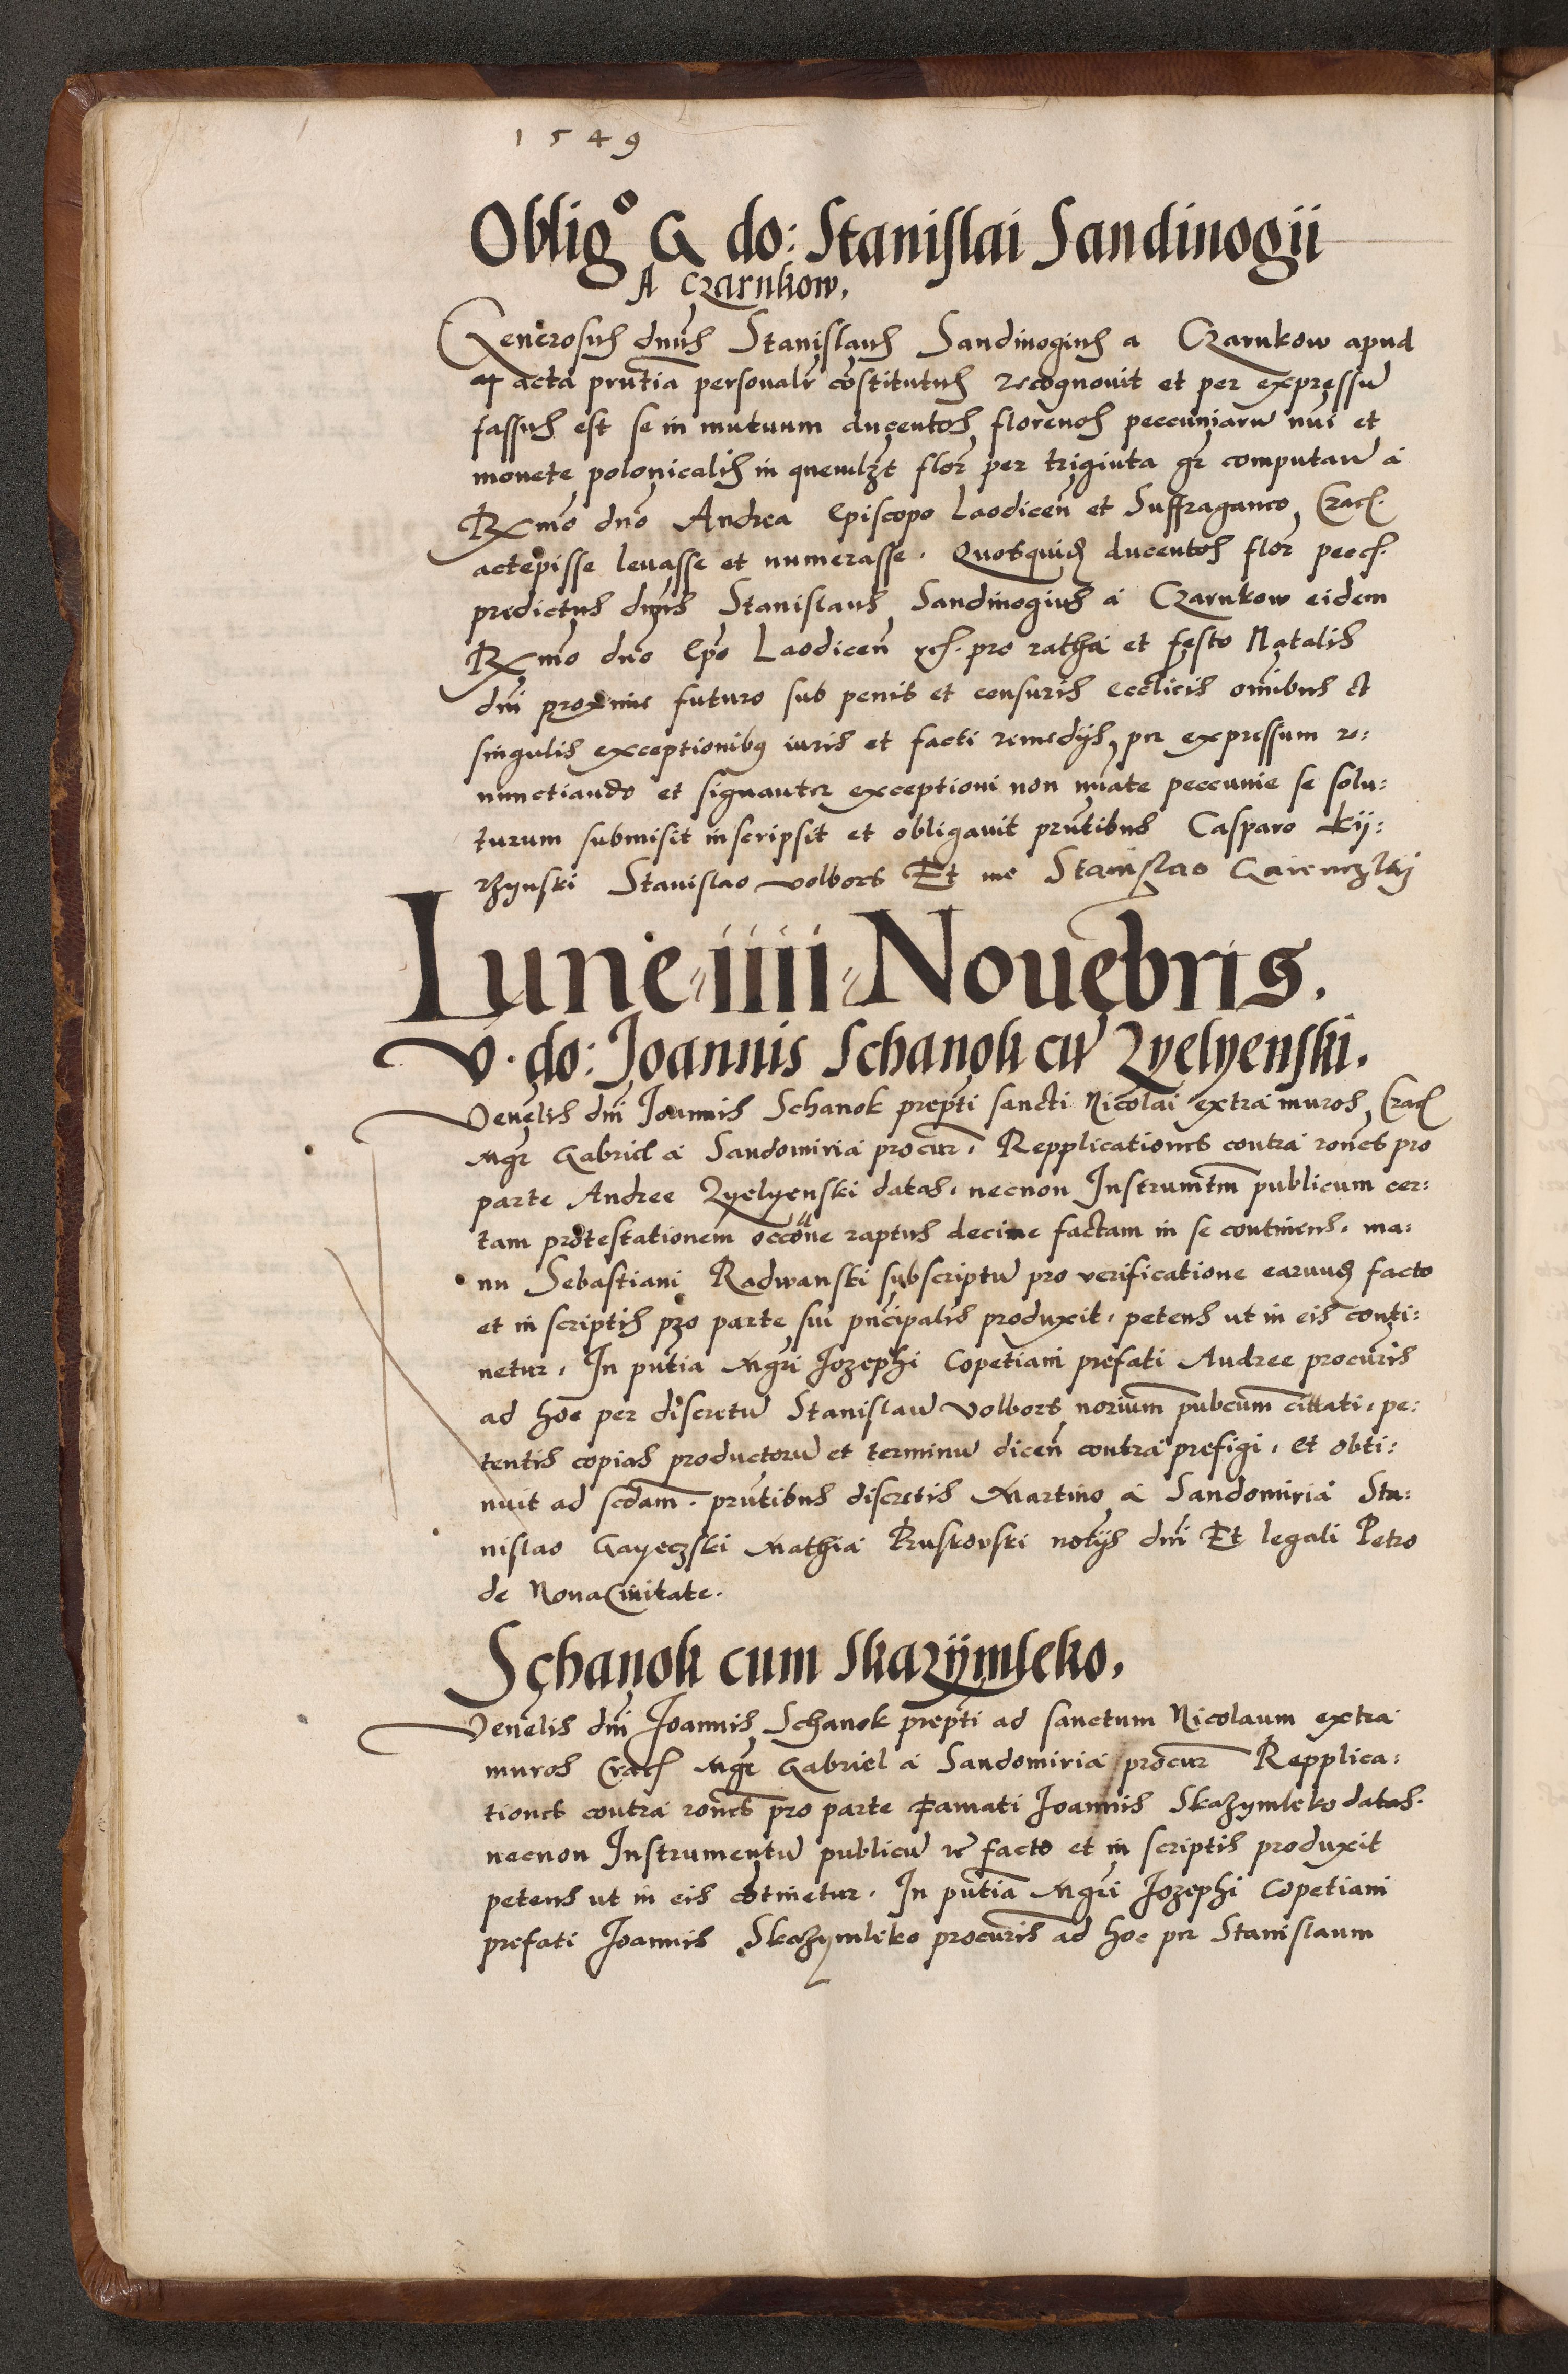 1549
Oblig⁰ G do: Stanislai Sandiuogii
A Czarnkow.
Generosus dnus Stanislaus Sandiuogius a Czarnkow apud
acta pntia personalr costitutus recognouit et per expressu
fassus est se in mutuum ducentos florenos peccuniaru nui et
monete polonicalis in quemlzt flor per triginta gr computan a
Rmo dno Andrea Episcopo Laodicen et Suffraganeo Crac.
accepisse leuasse et numerasse. Quosquid ducentos flor pecc.
predictus dnus Stanislaus Sandiuogius a Czarnkow eidem
Rmo dno Epo Laodicen rc. pro ratha et festo Natalis
dni proxime futuro sub penis et censuris ecclicis omibus et
singulis exceptionibus iuris et facti remedijs per expressum re:
nunctiando et signanter exceptioni non nuate peccunie se solu:
turum submisit inscripsit et obligauit pntibus Casparo Kij:
rzynski Stanislao Volbors Et me Stanislao
Lune iiii Nouebris.
V. do: Joannis Schanok cu Zyelyenski.
Venelis dni Joannis Schanok prepti sancti Nicolai extra muros Crac
Mgr Gabriel a Sandomiria procur. Repplicationes contra rones pro
parte Andree Zyelyenski datas. necnon Instrumtm publicum cer:
tam protestationem occone raptus decime factam in se continens. ma:
nu Sebastiani Radwanski subscriptu pro verificatione earund facto
et in scriptis pro parte sui pncipalis produxit. petens ut in eis conti:
netur. In pntia Mgri Jozephi Copetiani prefati Andree procuris
ad hoc per discretu Stanislau Volbors norium pubcum cittati. pe:
tentis copias productoru et terminu dicen contra prefigi. Et obti:
nuit ad scdam. pntibus discretis Martino a Sandomiria Sta:
nislao Gayeczski Mathia Pruskovski notijs dni Et legali Petro
de Noua Ciuitate.
Schanok cum Skazijmleko.
Venelis dni Joannis Schanok prepti ad sanctum Nicolaum extra
muros Crac Mgr Gabriel a Sandomiria procur Repplica:
tiones contra rones pro parte Famati Joannis Skazymleko datas.
necnon Instrumentu publicu rc facto et in scriptis produxit
petens ut in eis cotinetur. In pntia Mgri Jozephi Copetiani
prefati Joannis Skazymleko procuris ad hoc per Stanislaum